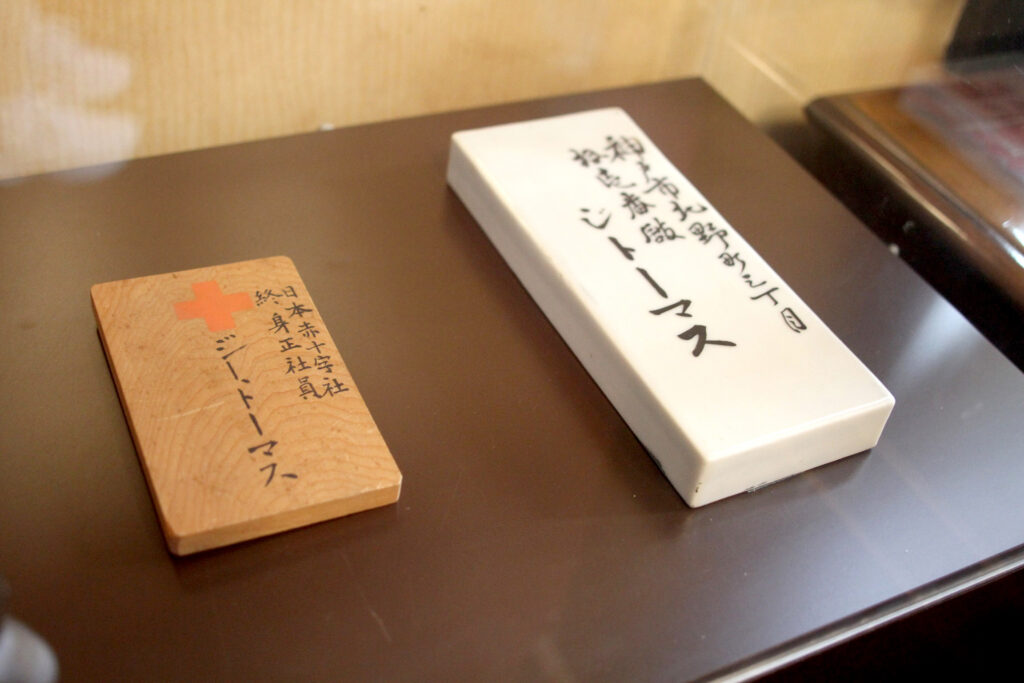 日本赤十字社
終身正社員
ジー、トーマス
神戸市北野町三丁目
ジトーマス